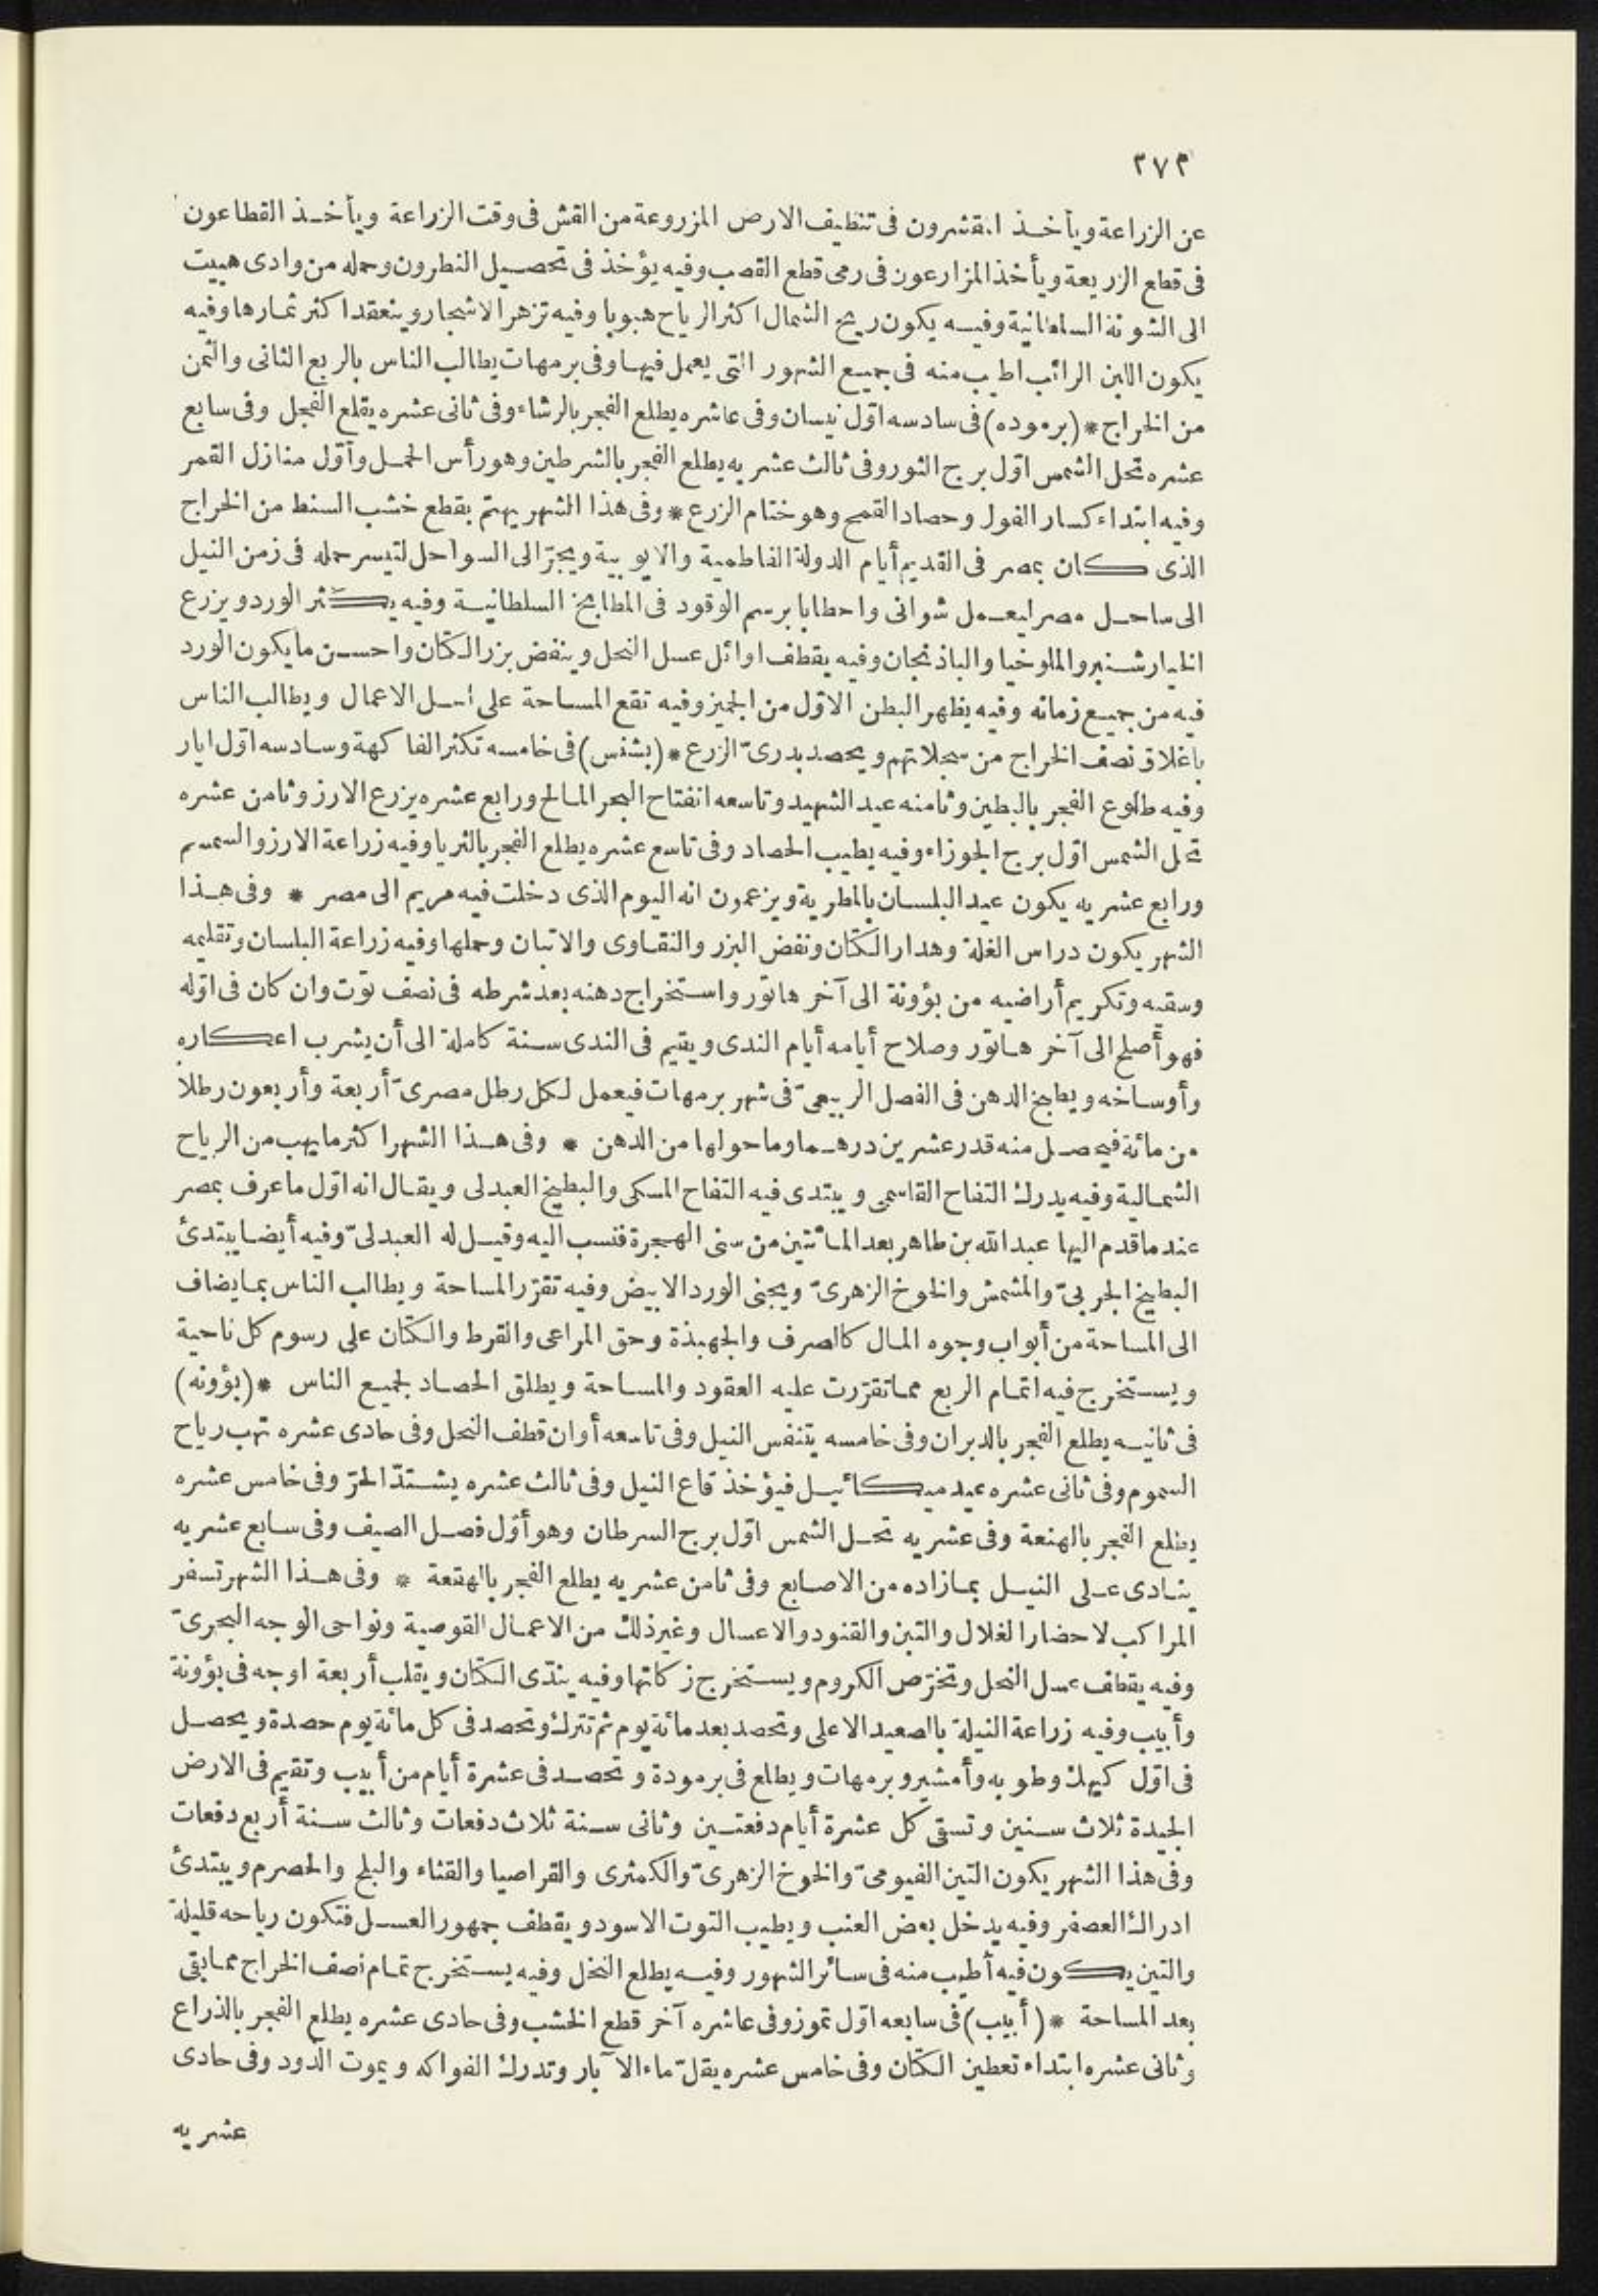 ٢٧٢
عن الزراعة ويأخذ المقشرون فى تنظيف الارض المزروعة من القش فى وقت الزراعة ويأخذ القطاعون
فى قطع الزريعة ويأخذ المزارعون فى رمى قطع القصب وفيه يؤخذ فى تحصيل النطرون وحمله من وادى هبيت
الى الشونة السلطانية وفيه يكون ريح الشمال اكثر الرياح هبوبا وفيه تزهر الاشجار وينعقد اكثر ثمارها وفيه
يكون اللبن الرائب اطيب منه فى جميع الشهور التى يعمل فيها وفى برمهات يطالب الناس بالربع الثانى والثمن
من الخراج * (برموده) فى سادسه اوّل نيسان وفى عاشره يطلع الفجر بالرشاء وفى ثانى عشره يقلع الفجل وفى سابع
عشره تحل الشمس اوّل برج الثور وفى ثالث عشريه يطلع الفجر بالشرطين وهو رأس الحمل واوّل منازل القمر
وفيه ابتداء كسار الفول وحصاد القمح وهو ختام الزرع * وفى هذا الشهر يهتمّ بقطع خشب السنط من الخراج
الذى كان بمصر فى القديم أيام الدولة الفاطمية والايوبية ويجرّ الى السواحل لتيسر حمله فى زمن النيل
الى ساحل مصر ليعمل شوانى واحطابا برسم الوقود فى المطابخ السلطانية وفيه يكثر الورد ويزرع
الخيار شنبر والملوخيا والباذنجان وفيه يقطف اوائل عسل النحل وينفض بزر الكتان واحسن ما يكون الورد
فيه من جميع زمانه وفيه يظهر البطن الاوّل من الجميز وفيه تقع المساحة على اهل الاعمال ويطالب الناس
باغلاق نصف الخراج من سجلاتهم ويحصد بدرىّ الزرع * (بشنس) فى خامسه تكثر الفاكهة وسادسه اوّل ايار
وفيه طلوع الفجر بالبطين وثامنه عيد الشهيد وتاسعه انفتاح البحر المالح ورابع عشره يزرع الارز وثامن عشره
تحل الشمس اوّل برج الجوزاء وفيه يطيب الحصاد وفى تاسع عشره يطلع الفجر بالثريا وفيه زراعة الارز والسمسم
ورابع عشريه يكون عيد البلسان بالمطرية ويزعمون انه اليوم الذى دخلت فيه مريم الى مصر * وفى هذا
الشهر يكون دراس الغلة وهدار الكتان ونفض البزر والنقاوى والاتبان وحملها وفيه زراعة البلسان وتقليمه
وسقيه وتكريم أراضيه من بؤونة الى آخر هاتور واستخراج دهنه بعد شرطه فى نصف توت وان كان فى اوّله
فهو أصلح الى آخر هاتور وصلاح أيامه أيام الندى ويقيم فى الندى سنة كاملة الى أن يشرب اعكاره
وأوساخه ويطبخ الدهن فى الفصل الربيعىّ فى شهر برمهات فيعمل لكل رطل مصرىّ أربعة وأربعون رطلا
من مائة فيحصل منه قدر عشرين درهما وما حولها من الدهن * وفى هذا الشهر اكثر ما يهب من الرياح
الشمالية وفيه يدرك التفاح القاسمى ويبتدى فيه التفاح المسكى والبطيخ العبدلى ويقال انه اوّل ما عرف بمصر
عندما قدم اليها عبد الله بن طاهر بعد المائتين من سنى الهجرة فنسب اليه وقيل له العبدلىّ وفيه أيضا يبتدئ
البطيخ الجربىّ والمشمش والخوخ الزهرىّ ويجنى الورد الابيض وفيه تقرّر المساحة ويطالب الناس بما يضاف
الى المساحة من أبواب وجوه المال كالصرف والجهبذة وحق المراعى والقرط والكتان على رسوم كل ناحية
ويستخرج فيه اتمام الربع مما تقرّرت عليه العقود والمساحة ويطلق الحصاد لجميع الناس * (بؤونه)
فى ثانيه يطلع الفجر بالدبران وفى خامسه يتنفس النيل وفى تاسعه أوان قطف النحل وفى حادى عشره تهب رياح
السموم وفى ثانى عشره عيد ميكائيل فيؤخذ قاع النيل وفى ثالث عشره يشتدّ الحرّ وفى خامس عشره
يطلع الفجر بالهنعة وفى عشريه تحل الشمس اوّل برج السرطان وهو أوّل فصل الصيف وفى سابع عشريه
ينادى على النيل بما زاده من الاصابع وفى ثامن عشريه يطلع الفجر بالهقعة * وفى هذا الشهر تسفر
المراكب لاحضار الغلال والتبن والقنود والاعسال وغير ذلك من الاعمال القوصية ونواحى الوجه البحرىّ
وفيه يقطف عسل النحل وتخرّص الكروم ويستخرج زكاتها وفيه يندّى الكتان ويقلب أربعة اوجه فى بؤونة
وأبيب وفيه زراعة النيلة بالصعيد الاعلى وتحصد بعد مائة يوم ثم تترك وتحصد فى كل مائة يوم حصدة ويحصل
فى اوّل كيهك وطوبه وأمشير وبرمهات ويطلع فى برمودة وتحصد فى عشرة أيام من أبيب وتقيم فى الارض
الجيدة ثلاث سنين وتسقى كل عشرة أيام دفعتين وثانى سنة ثلاث دفعات وثالث سنة أربع دفعات
وفى هذا الشهر يكون التين الفيومىّ والخوخ الزهرىّ والكمثرى والقراصيا والقثاء والبلح والحصرم ويبتدئ
ادراك العصفر وفيه يدخل بعض العنب ويطيب التوت الاسود ويقطف جمهور العسل فتكون رياحه قليلة
والتين يكون فيه أطيب منه فى سائر الشهور وفيه يطلع النخل وفيه يستخرج تمام نصف الخراج مما بقى
بعد المساحة * (أبيب) فى سابعه اوّل تموز وفى عاشره آخر قطع الخشب وفى حادى عشره يطلع الفجر بالذراع
وثانى عشره ابتداء تعطين الكتان وفى خامس عشره يقلّ ماء الآبار وتدرك الفواكه ويموت الدود وفى حادى
عشريه